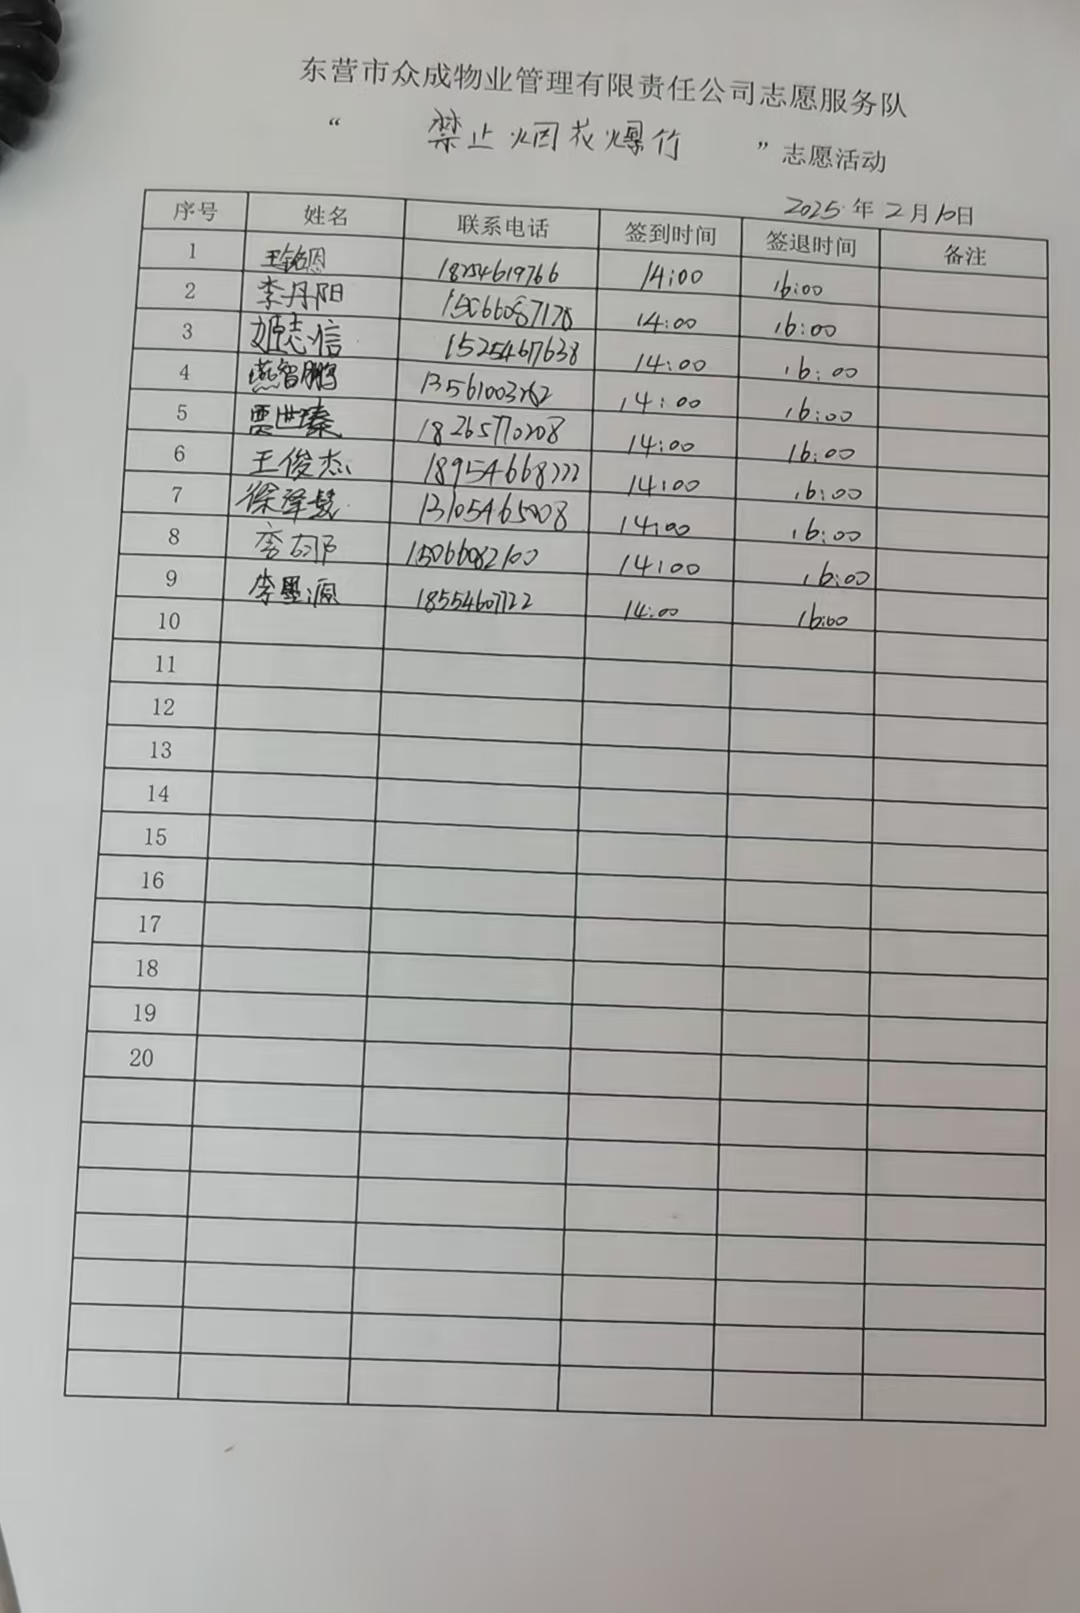 东营市众成物业管理有限责任公司志愿服务队
“ 禁止烟花爆竹 ”志愿活动
2025年2月10日
序号 姓名 联系电话 签到时间 签退时间 备注
1 王铭恩 18254619766 14:00 16:00
2 李丹阳 15066087178 14:00 16:00
3 姬志信 15254617638 14:00 16:00
4 燕智鹏 14:00 16:00
5 贾世臻 18265770208 14:00 16:00
6 王俊杰 18954668222 14:00 16:00
7 徐泽慧 13105465008 14:00 16:00
8 15066082100 14:00 16:00
9 李墨源 18554607722 14:00 16:00
10
11
12
13
14
15
16
17
18
19
20